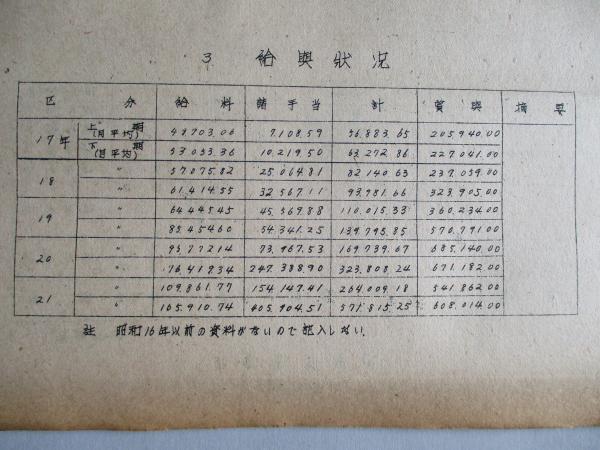 3 給與狀況
区分 給料 諸手当 計 賞與 摘要
17年 上期(月平均) 49703.06 7,108.59 56,883.65 205,940.00
下期(月平均) 53,053.36 10,219.50 63,272.86 227,041.00
18 〃 57,075.82 25,064.81 82,140.63 237,059.00
〃 61,414.55 32,567.11 93,981.66 323,905.00
19 〃 64,445.45 45,569.88 110,015.33 360,234.00
〃 85,454.60 54,341.25 139,795.85 570,791.00
20 〃 95,772.14 73,967.53 169,739.67 685,140.00
〃 76,419.34 247,388.90 323,808.24 671,182.00
21 〃 109,861.77 154,147.41 264,009.18 541,862.00
〃 165,910.74 405,904.51 571,815.25 608,014.00
註 昭和16年以前の資料がないので記入しない.